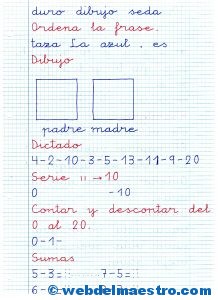 duro dibujo seda
Ordena la frase.
taza La azul . es
Dibujo
padre madre
Dictado
4-2-10-3-5-13-11-9-20
Serie 11 → 10
0 -10
Contar y descontar del
0 al 20.
0-1-
Sumas
5-3= 7-5=
© webdelmaestro.com